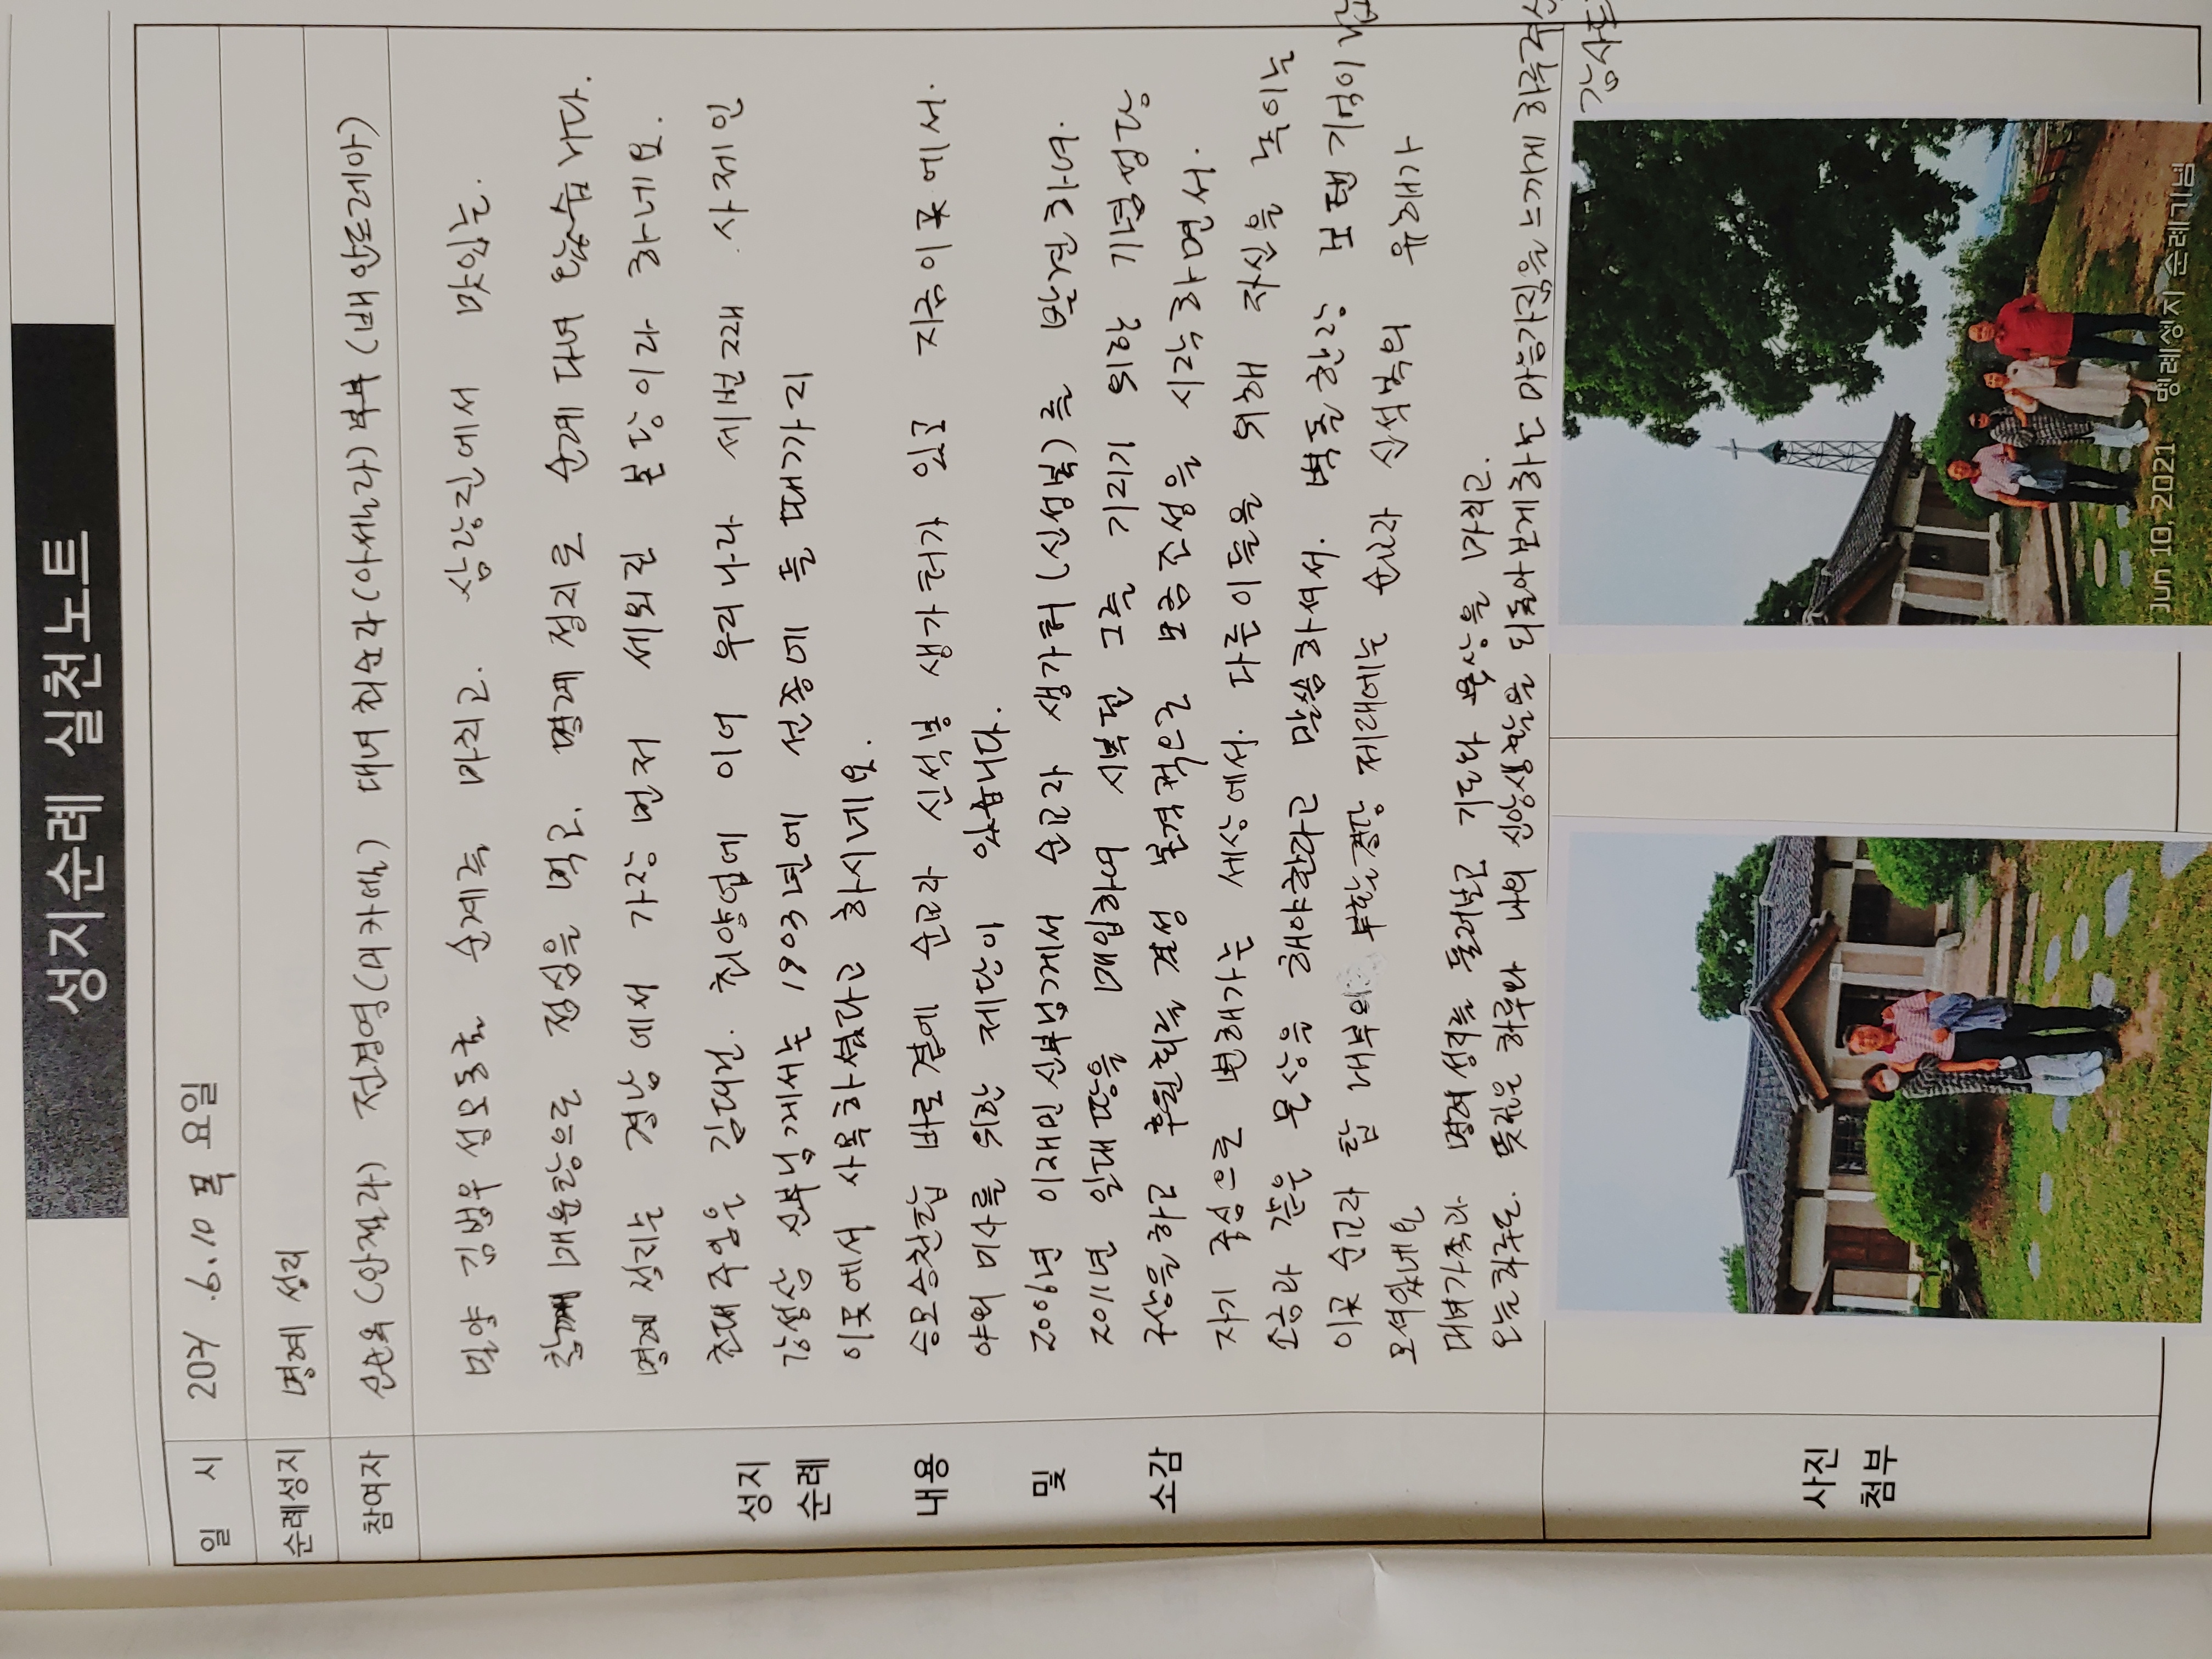 성지순례 실천노트
일 시 2021.6.10 목 요일
순례성지 명례 성지
참여자 신순옥(안젤라) 전경영(미카엘) 대녀 최순자(아셀라) 부부(배안드레아)
밀양 김범우 성모동굴 순례를 마치고. 삼랑진에서 맛있는.
참깨 매운탕으로 점심을 먹고. 명례 성지로 순례 다녀 왔습니다.
명례 성지는 경남에서 가장 먼저 세워진 본당이라 하네요.
천대주업은 김대건. 최양업에 이어 우리나라 세번째 사제인
강성삼 신부님께서는 1903년에 선종에 들 때가지
이곳에서 사목하셨다고 하시네요.
승모승천탑 바로 곁에 순교자 신석봉 생가터가 있고 지금이곳에서.
야외 미사를 위한 제단이 있습니다.
2006년 이재민 신부님게서 순교자 생가터(신성봉)를 발견하녀.
2011년 일대 땅을 매입하여 시복된 그를 기리기 위한 기념성당
구상을 하고 후원회를 결성 본격적으로 보층준성을 시작하면서.
자기 중심으로 변해가는 세상에서. 다른이들을 위해 자신을 녹이는
소금과 같은 묵상을 해야한다고 말씀하셔서. 벽돌한장 보탠기억이
이곳 순교자 탑 내부의 부활경당 제대에는 순교자 신석복의 유해가
모셔있네요
대녀가족과 명례성지를 둘러보고 기도와 묵상을 마치고.
오늘하루도 뜻깊은 하루와 나의 신앙생활을 되돌아보게하는 마음가짐을 느끼게 하루
감사
성지
순례
내용
및
소감
사진
첨부
Jun 10, 2021 명례성지 순례기념